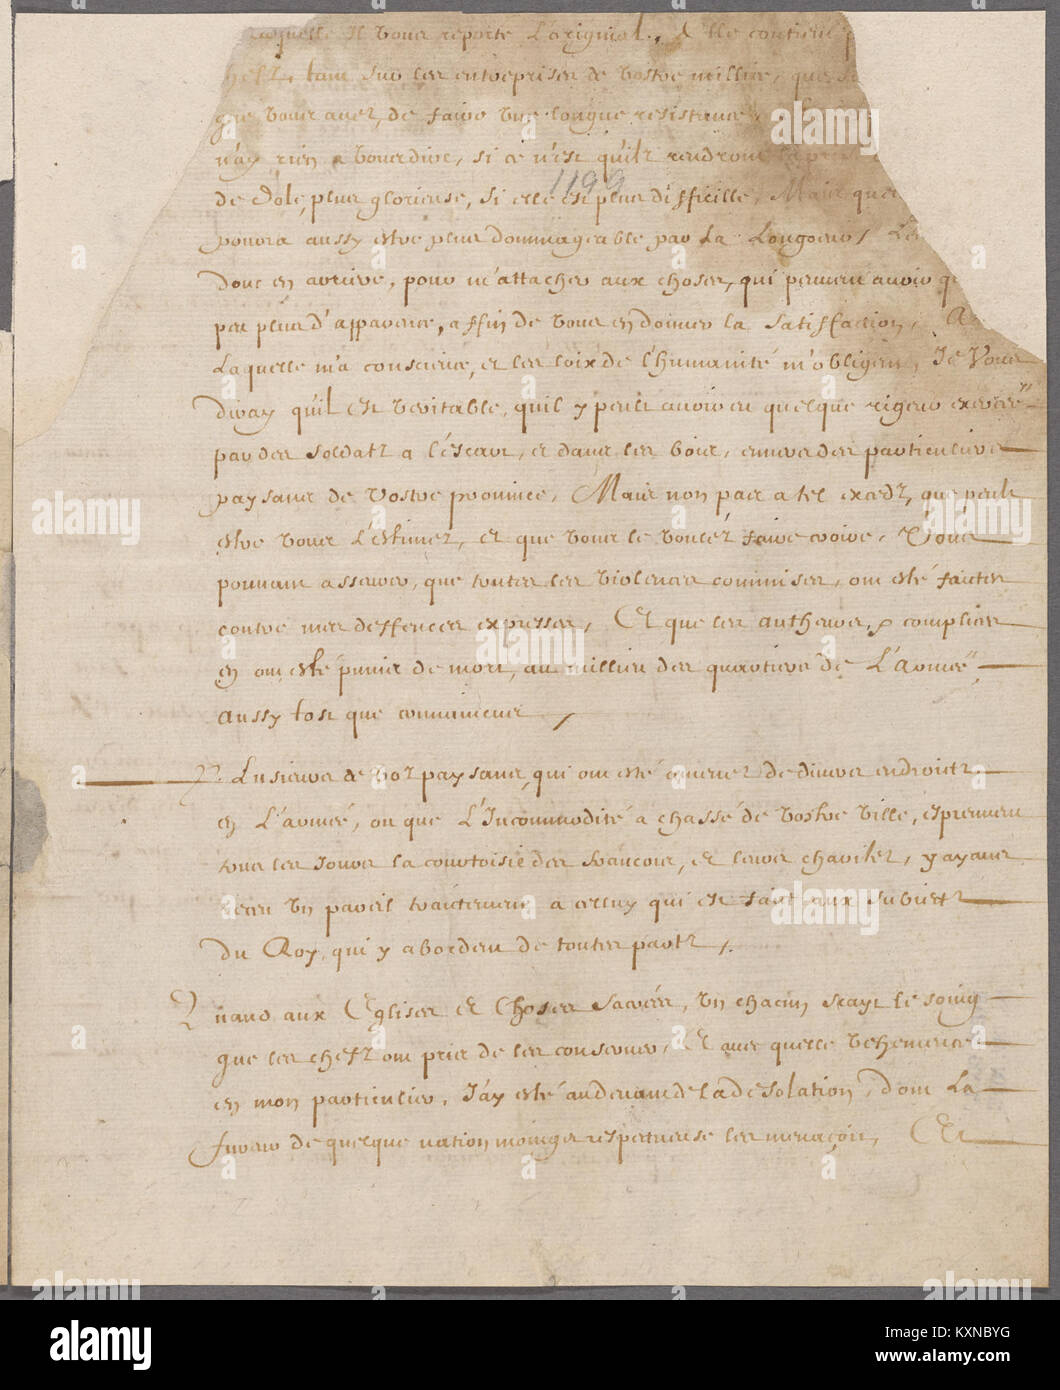 laquelle Il vous reporte L'original, Elle contient
chefz, tant sur les entreprises de vostre millice, que
que vous avez, de faire une longue resistance
n'ay rien a vous dire, si ce n'est qu'ilz rendront la prise
de Dole, plus glorieuse, si elle est plus difficille, Mais que
1199
poura aussy estre plus dommageable par La Longueur,
donc en arriere, pour m'attacher aux choses, qui peuvent avoir
peu plus d'apparence, affin de vous en donner la satisfaction, A
Laquelle ma conscience, et les loix de l'humanité m'obligent, Je Vous
diray qu'il est veritable, qu'il y peult avoir eu quelque rigeur exercée
par des soldatz a l'escart, et dans les bois, envers des particuliers
paysans de Vostre province, Mais non pas a tel excedz, que peult
estre vous L'estimez, et que vous le voulez faire croire, Vous
pouvant asseurer, que toutes les violences commises, ont esté faictes
contre mes deffences expresses, Et que les autheurs, & complices
en ont esté punis de mort, au millieu des quartiers de L'Armée
aussy tost que connus
Plusieurs de voz paysans, qui ont esté amenez de divers endroictz
en L'armée, ou que L'Incommodité a chassé de vostre ville, espreuvent
tous les Jours la courtoisie des francois, et leurs charitez, y ayans
receu un pareil traictement a celluy qui est faict aux subiectz
du Roy, qui y abordent de toutes partz,
Quand aux Eglises et Choses Sacrées, Un chacun scayt le soing
que les chefz ont pris de les conserver, Et avec quelle vehemence
en mon particulier, J'ay esté au devant de la desolation, dont La
fureur de quelque nation moings respectueuse les menaçoit, Et
alamy
Image ID: KXNBYG
www.alamy.com